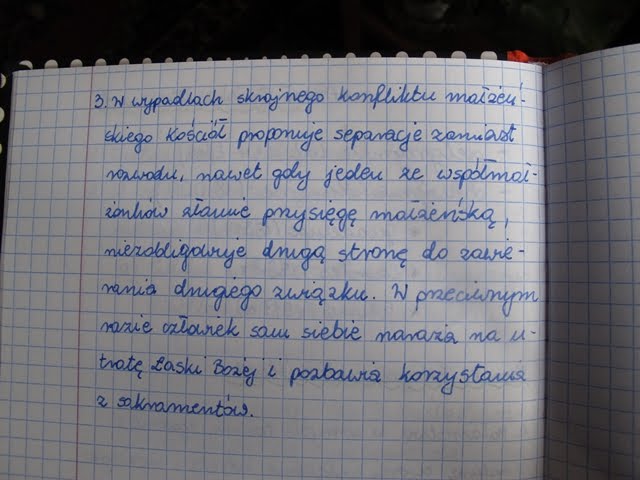 3. W wypadlach skrajnego konfliktu małżeń-
skiego Kościół proponuje separacje zamiast
rozwodu, nawet gdy jeden ze współmał-
żonków złamie przysięgę małżeńską,
niezobligowuje drugą stronę do zawie-
rania drugiego związku. W przeciwnym
razie człowiek sam siebie naraża na u-
tratę Łaski Bożej i pozbawia korzystania
z sakramentów.